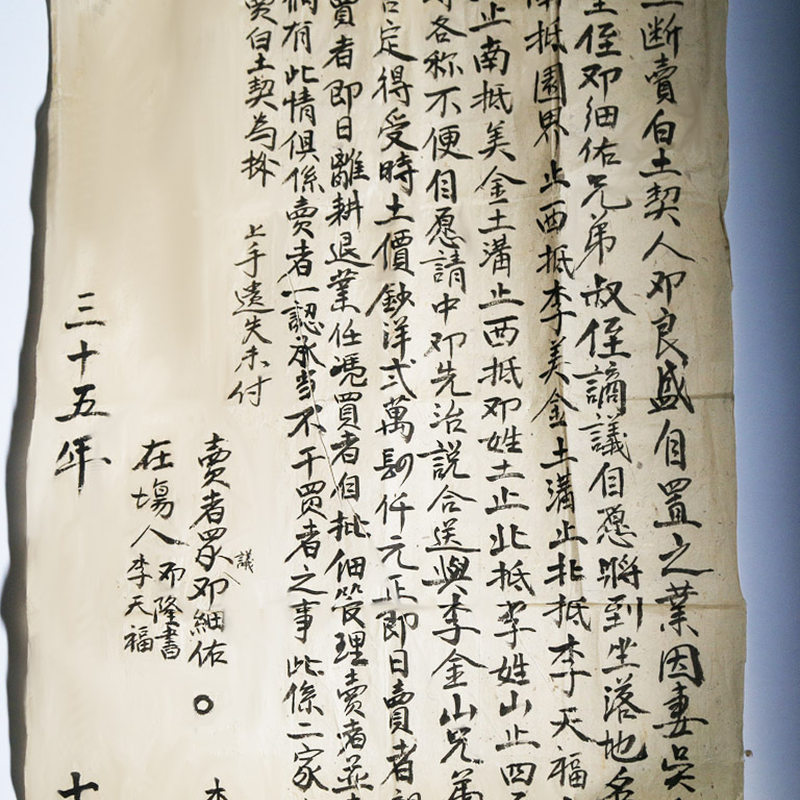 断賣白土契人邓良盛自置之業因妻吳
侄邓細佑兄弟叔侄謫議自愿將到坐落地名
抵園界止西抵李美金土溝止北抵李天福
止南抵美金土溝止西抵邓姓土止北抵李姓山止四
各称不便自愿請中邓先治説合送與李金山兄
定得受時土價鈔洋弍萬肆仟元正即日賣者
買者即日離耕退業任凴買者自批佃管理賣者並
有此情俱係賣者一認承当不干買者之事此係二家
買白土契為㨿
上手遺失未付
賣者眾議邓細佑
在塲人邓隆書
李天福
三十五年
十